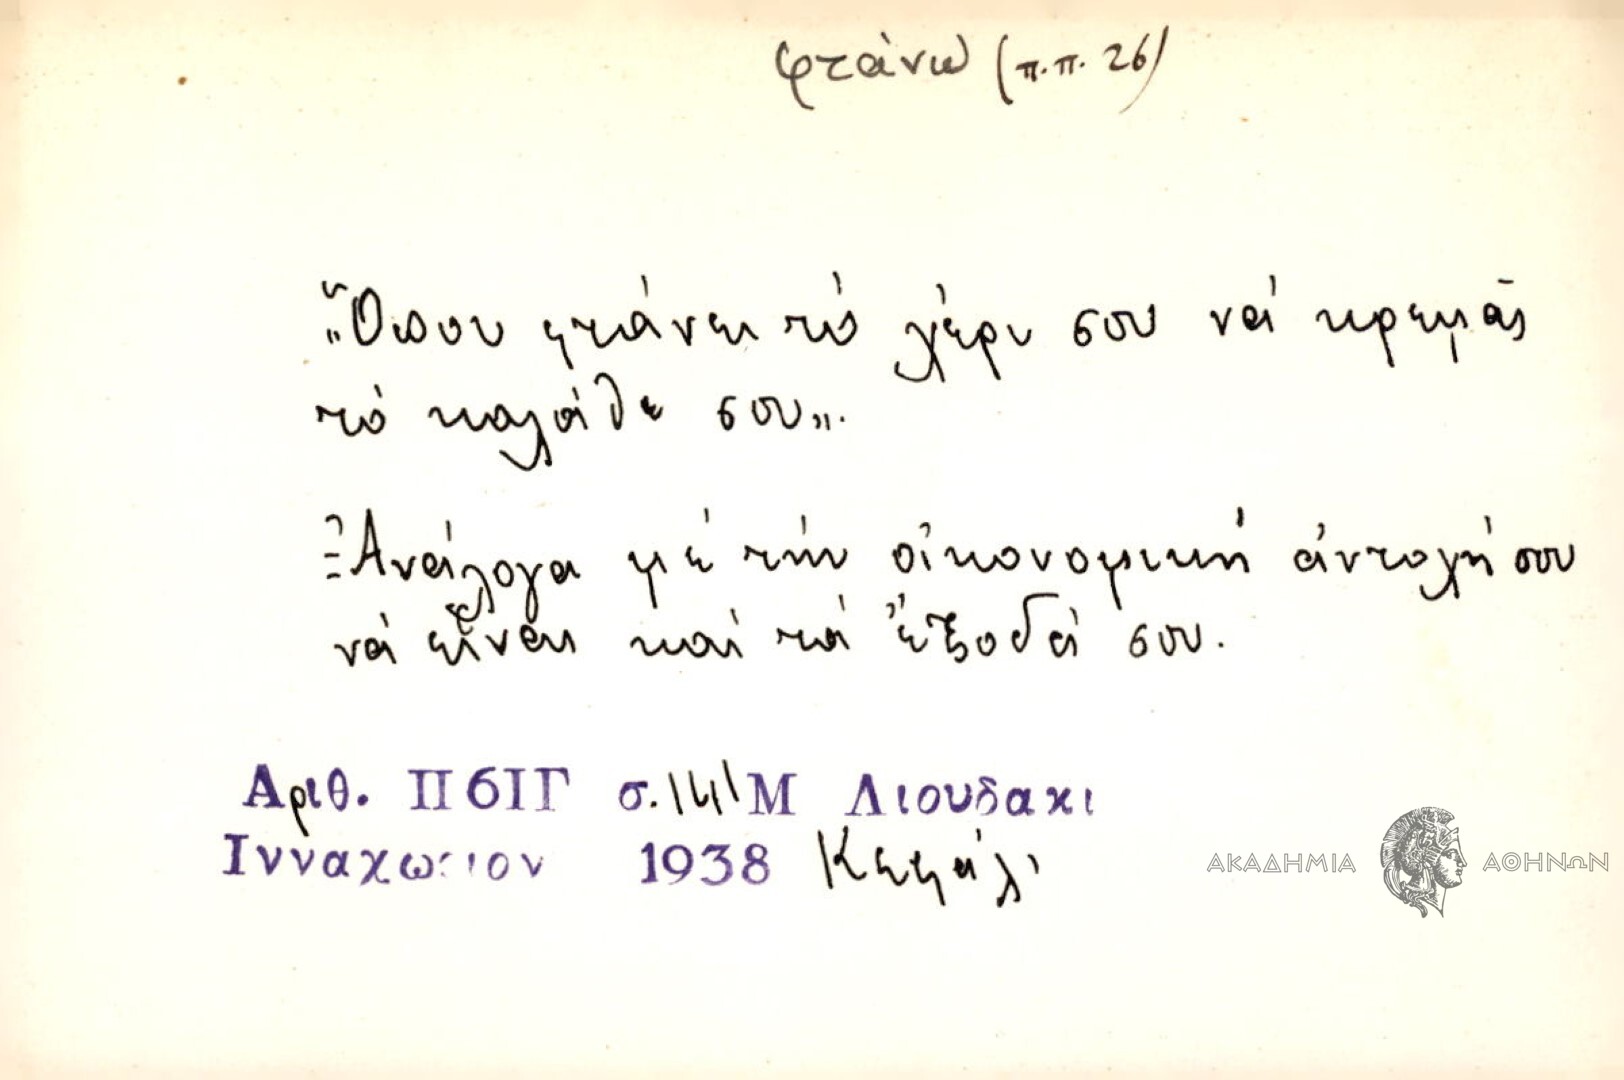 φτάνω (π.π. 26)
„Ὅπου φτάνει τὸ χέρι σου νά κρεμᾶς
τό καλάθι σου„.
= Ἀνάλογα μέ τήν οἰκονομική ἀντοχή σου
νά εἶναι καί τά ἔξοδά σου.
Αριθ. Π6ΙΓ σ. 141 Μ Λιουδακι
Ινναχωριον 1938 Κεφάλι
ΑΚΑΔΗΜΙΑ ΑΘΗΝΩΝ